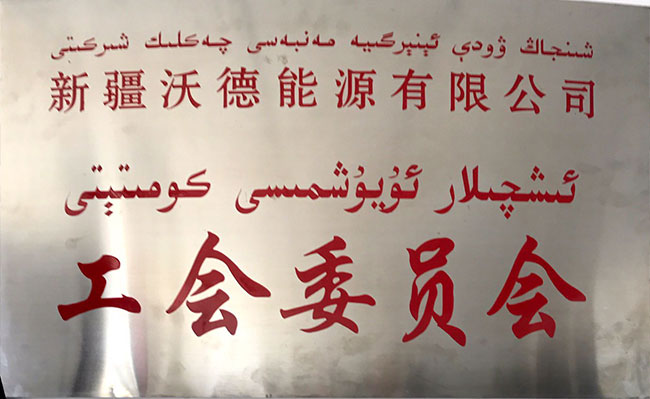 شىنجاڭ ۋودې ئېنېرگىيە مەنبەسى چەكلىك شىركىتى
新疆沃德能源有限公司
ئىشچىلار ئۇيۇشمىسى كومىتېتى
工会委员会